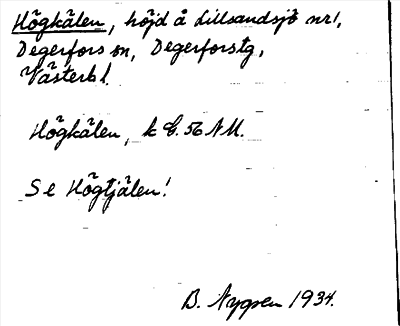 Högkälen, höjd å Lillsandsjö nr 1,
Degerfors sn, Degerforstg,
Västerb l.
Högkälen, k G. 56 NM.
Se Högtjälen!
B. Nygren 1934.